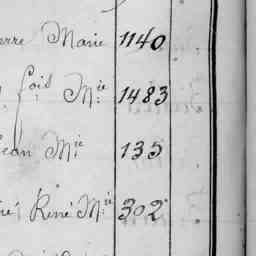 erre Marie 1140
fois Mie 1483
Jean Mie 135
né René Mie 302